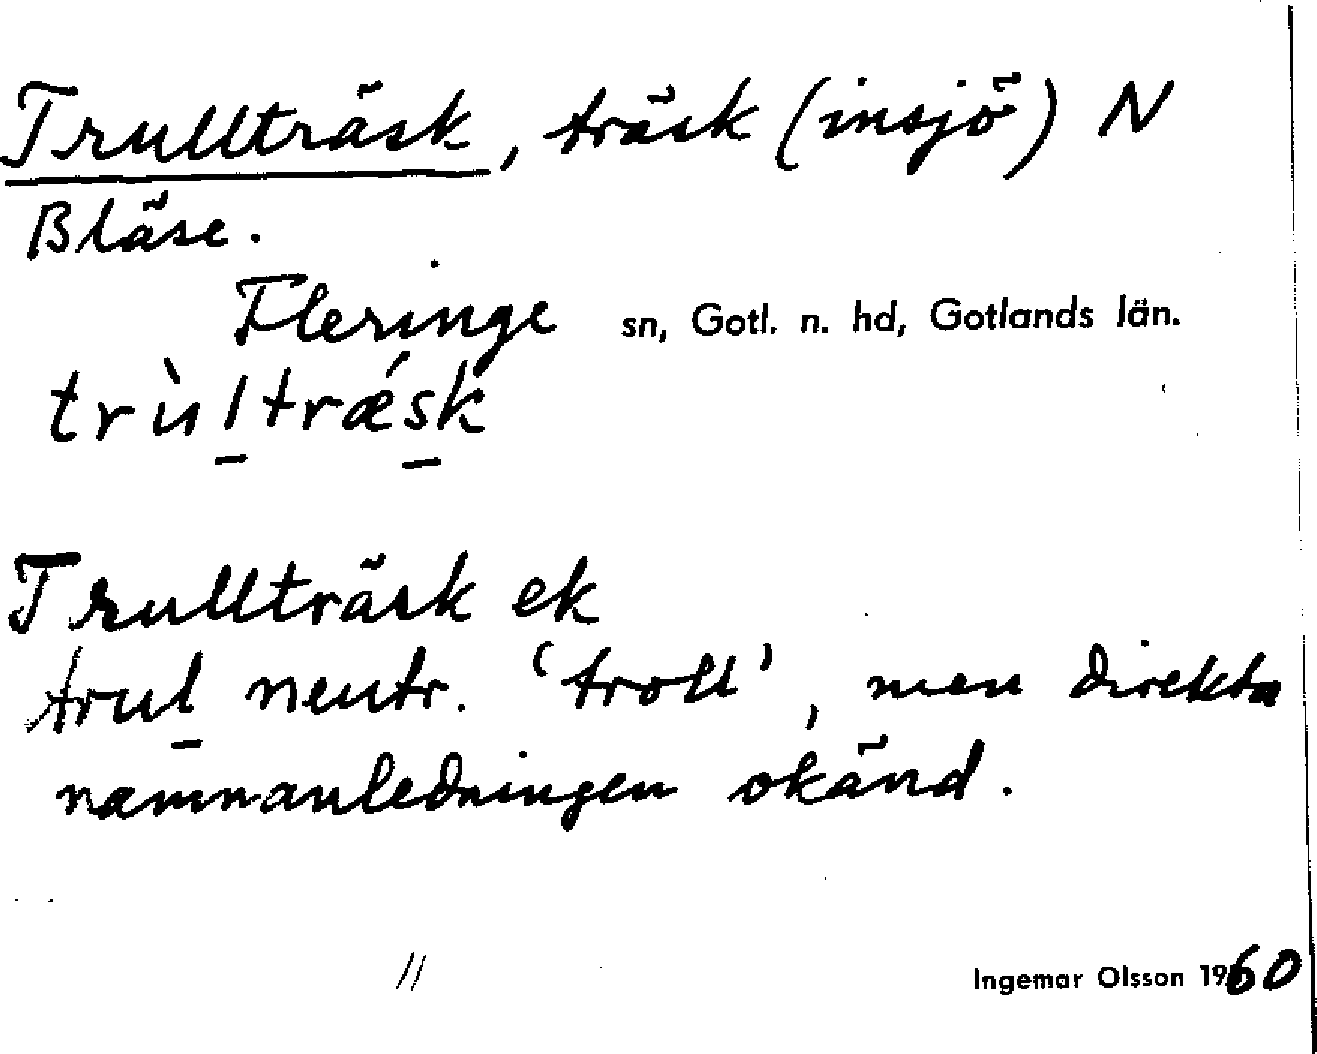 Trullträsk, träsk (insjö) N
Bläse.
Fleringe sn, Gotl. n. hd, Gotlands län.
trùl̲trǽs̲k
Trullträsk ek
trul̲ neutr. ‘troll’, men direkta
namnanledningen okänd.
//
Ingemar Olsson 1960